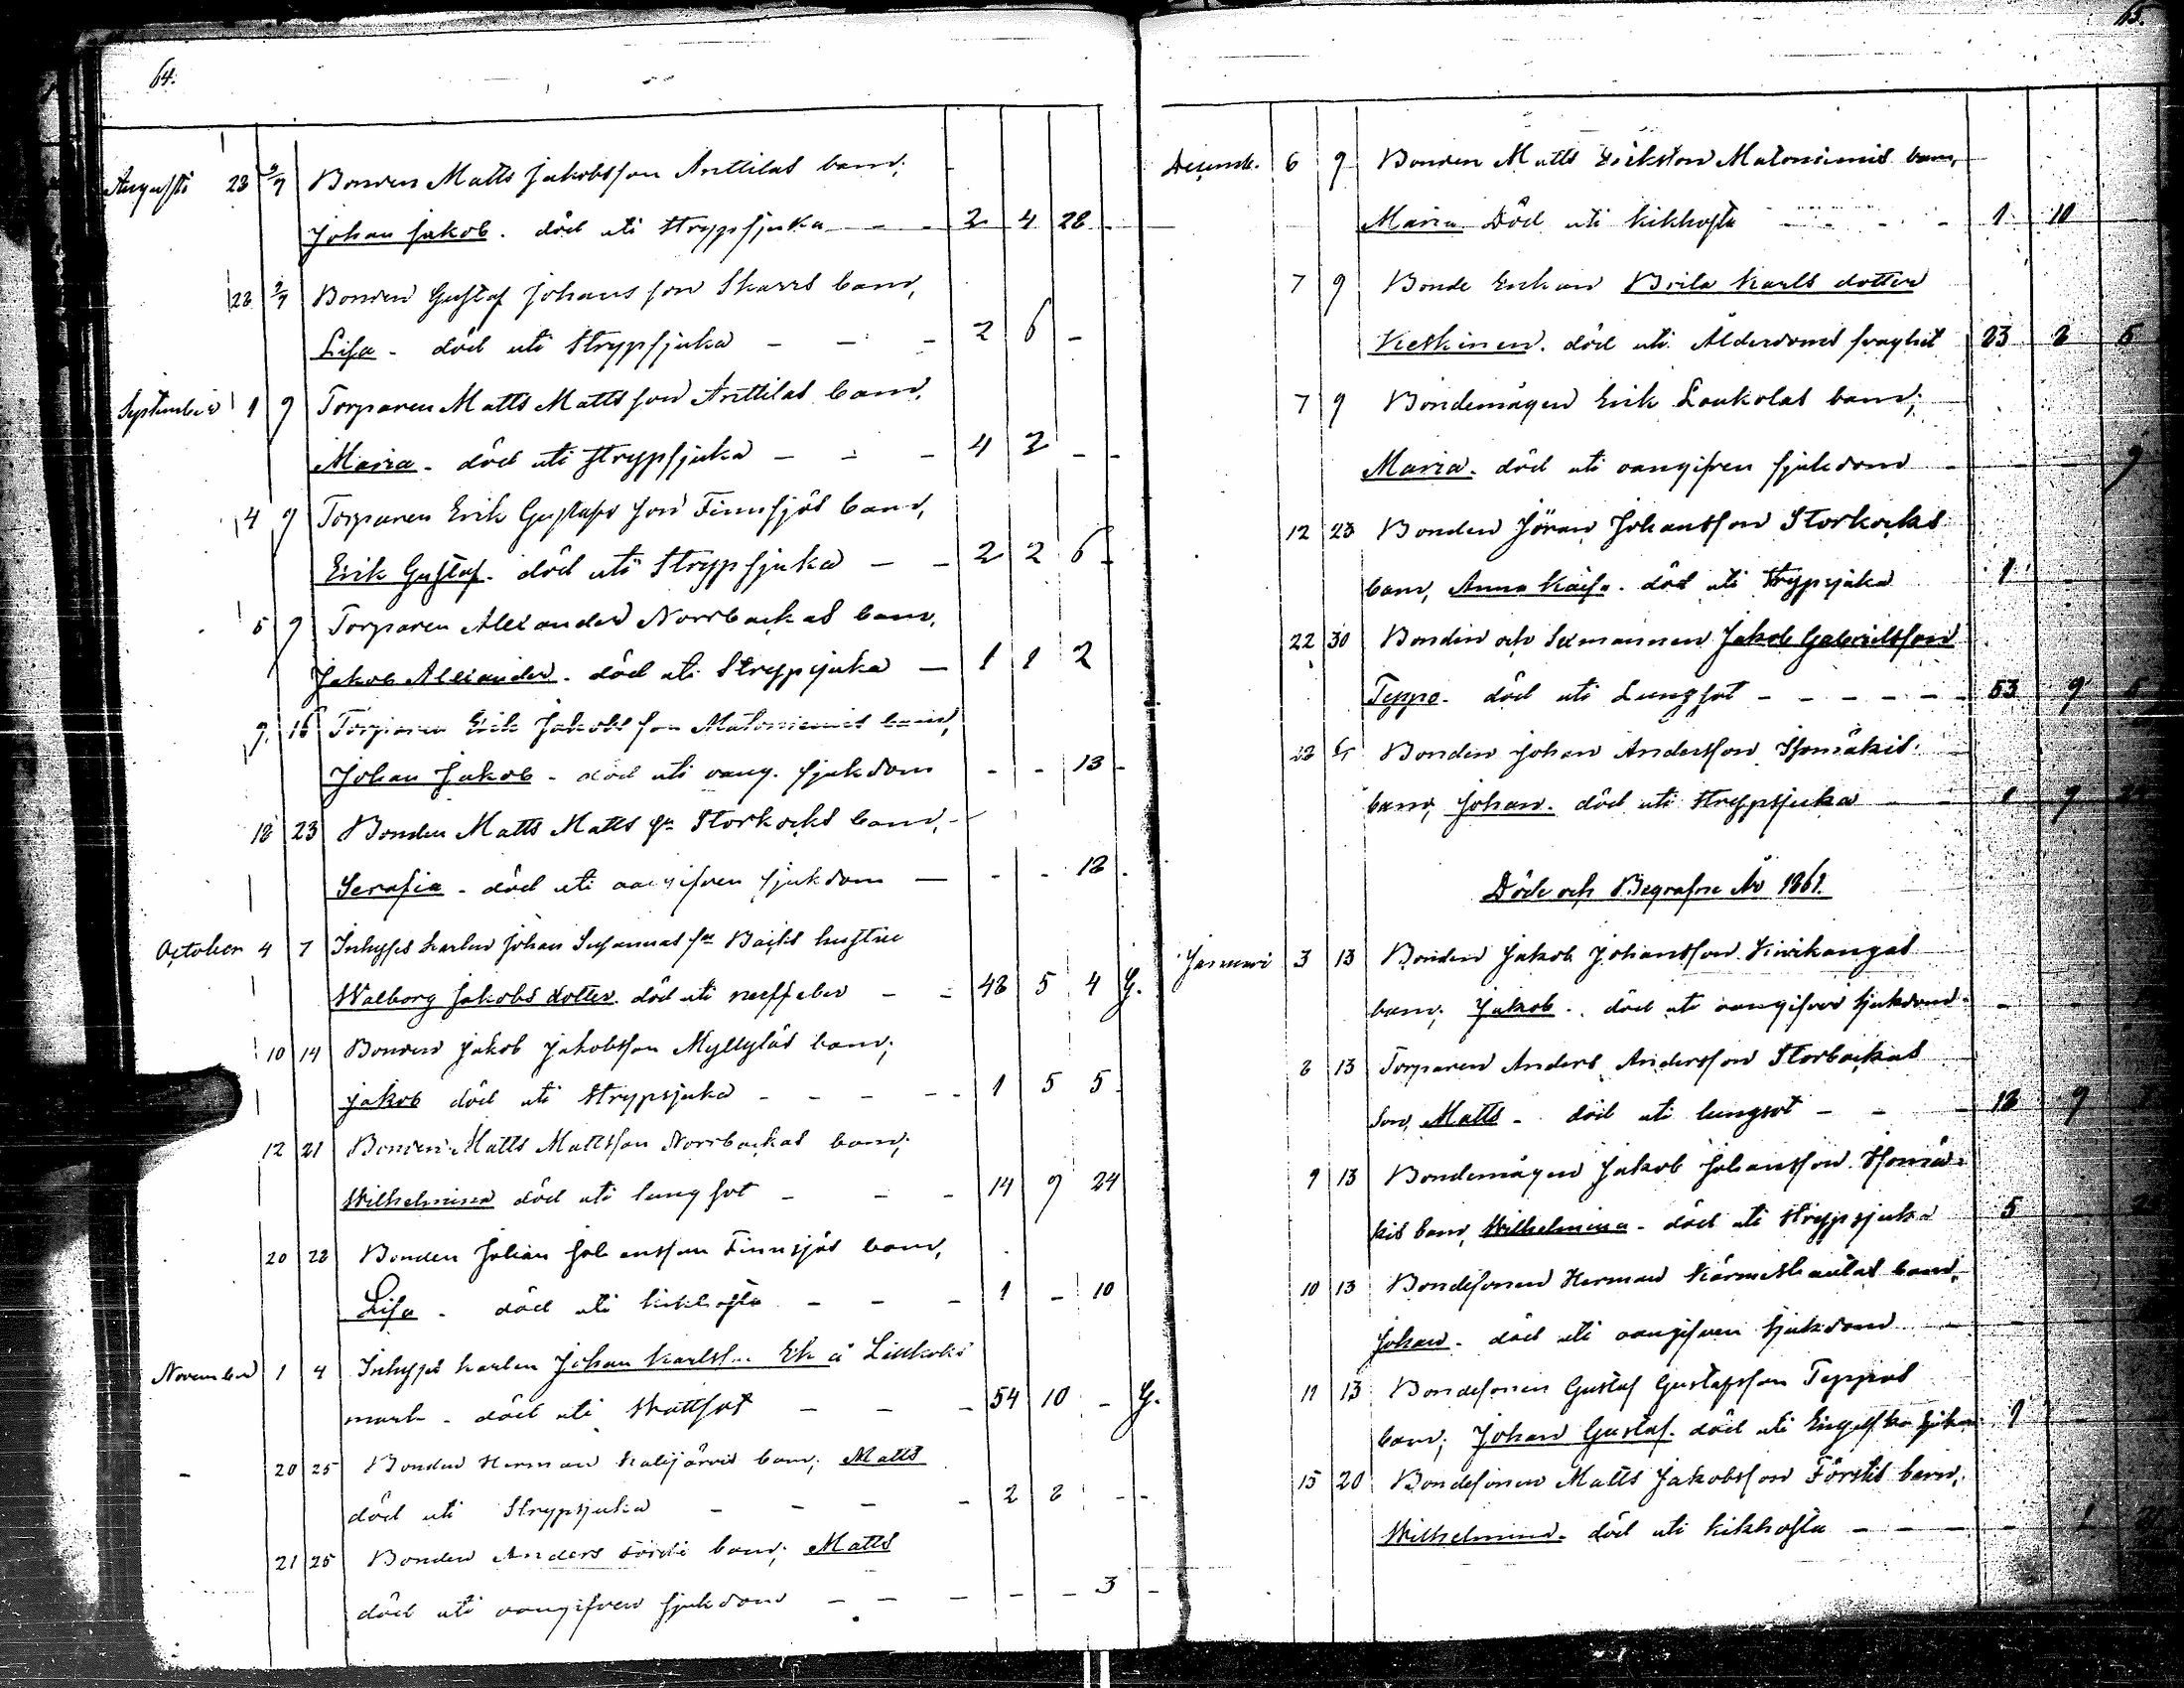 64.
Augusti 23 2/9 Bonden Matts Jakobsson Anttilas barn,
Johan Jakob. död uti strypsjuka - - 2 4 28 -
28 2/9 Bonden Gustaf Johansson Skarrs barn,
Lisa - död uti strypsjuka - - - 2 6 -
September 1 9 Torparen Matts Mattsson Anttilas barn,
Maria - död uti strypsjuka - - - 4 2 - -
4 9 Torparen Erik Gustafsson Finnsjös barn,
Erik Gustaf - död uti Strypsjuka - - 2 2 6 -
5 9 Torparen Alexander Norrbackas barn,
Jakob Alexander - död uti Strypsjuka - 1 1 2
9 16 Torparen Erik Jakobsson Matoniemis barn,
Johan Jakob - död uti oang. sjukdom - - 13 -
18 23 Bonden Matts Matts sn Storkocks barn,
Serafia - död uti oangifven sjukdom - - - 12 -
October 4 7 Inhyses karlen Johan Susannas sn Backs hustru
Walborg Jakobs dotter död uti nerffeber - - 48 5 4 G.
10 14 Bonden Jakob Jakobsson Myllyläs barn,
Jakob död uti Strypsjuka - - - - 1 5 5
12 21 Bonden Matts Mattsson Norrbackas barn,
Wilhelmina död uti lungsot - - - 14 9 24
20 28 Bonden Johan Johansson Finnsjös barn,
Lisa - död uti kikhosta - - - 1 - 10
November 1 4 Inhyses karlen Johan Karlsson Ek å
mark - död uti Wattsot - - - 54 10 - G.
20 25 Bonden Herman Kalijärvis barn, Matts
död uti Strypsjuka - - - - 2 8 - -
21 25 Bonden Anders barn, Matts
död uti oangifven sjukdom - - - - - 3 -
65.
Decemb. 6 9 Bonden Matts Eriksson Matoniemis barn,
Maria Död uti kikhosta - - - - 1 10
7 9 Bonde Enkan Brita Karls dotter
Keskinen. död uti Ålderdoms svaghet 23 2 5
7 9 Bondemågen Erik Loukolas barn,
Maria. död uti oangifven sjukdom - - - 9
12 23 Bonden Jöran Johansson Storkocks
barn, Anna Kaisa. död uti strypsjuka 1
22 30 Bonden och Sexmannen Jakob Gabrielsson
Teppo. död uti Lungsot - - - - - 53 9 5
Bonden Johan Andersson
barn, Johan. död uti strypsjuka 1 9
Döde och Begrafne År 1861.
Januari 3 13 Bonden Jakob Johansson Kivikangas
barn, Jakob. död uti oangifven sjukdom - -
8 13 Torparen Anders Andersson Storbackas
son, Matts - död uti lungsot - - - 18 9
9 13 Bondemågen Jakob Johansson
kis barn, Wilhelmina - död uti strypsjuka 5
10 13 Bondesonen Herman barn,
Johan - död uti oangifven sjukdom -
11 13 Bondesonen Gustaf Gustafsson Teppos
barn, Johan Gustaf. död uti Engelska sjukan 1
15 20 Bondesonen Matts Jakobsson Förstis barn,
Wilhelmina. död uti kikhosta - - - - 1